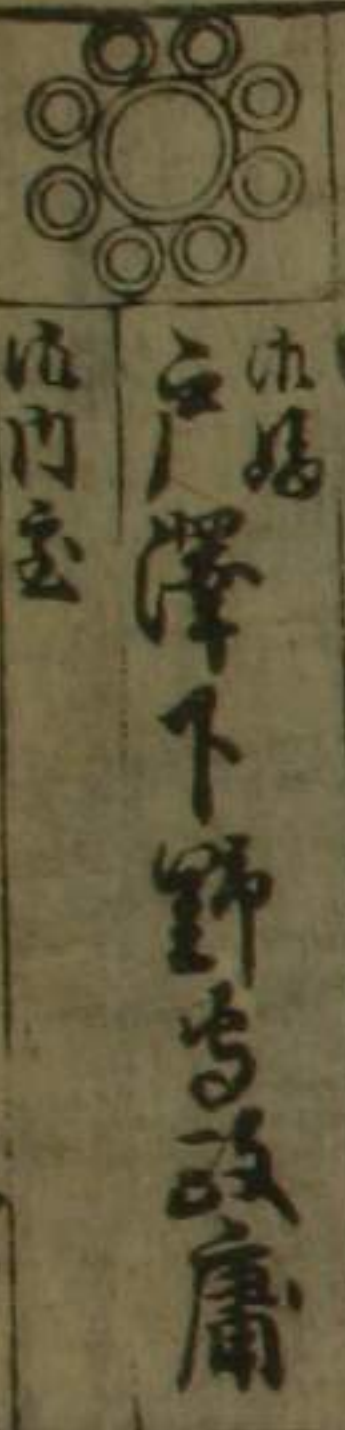 御嫡
戸澤下野守政庸
御内室